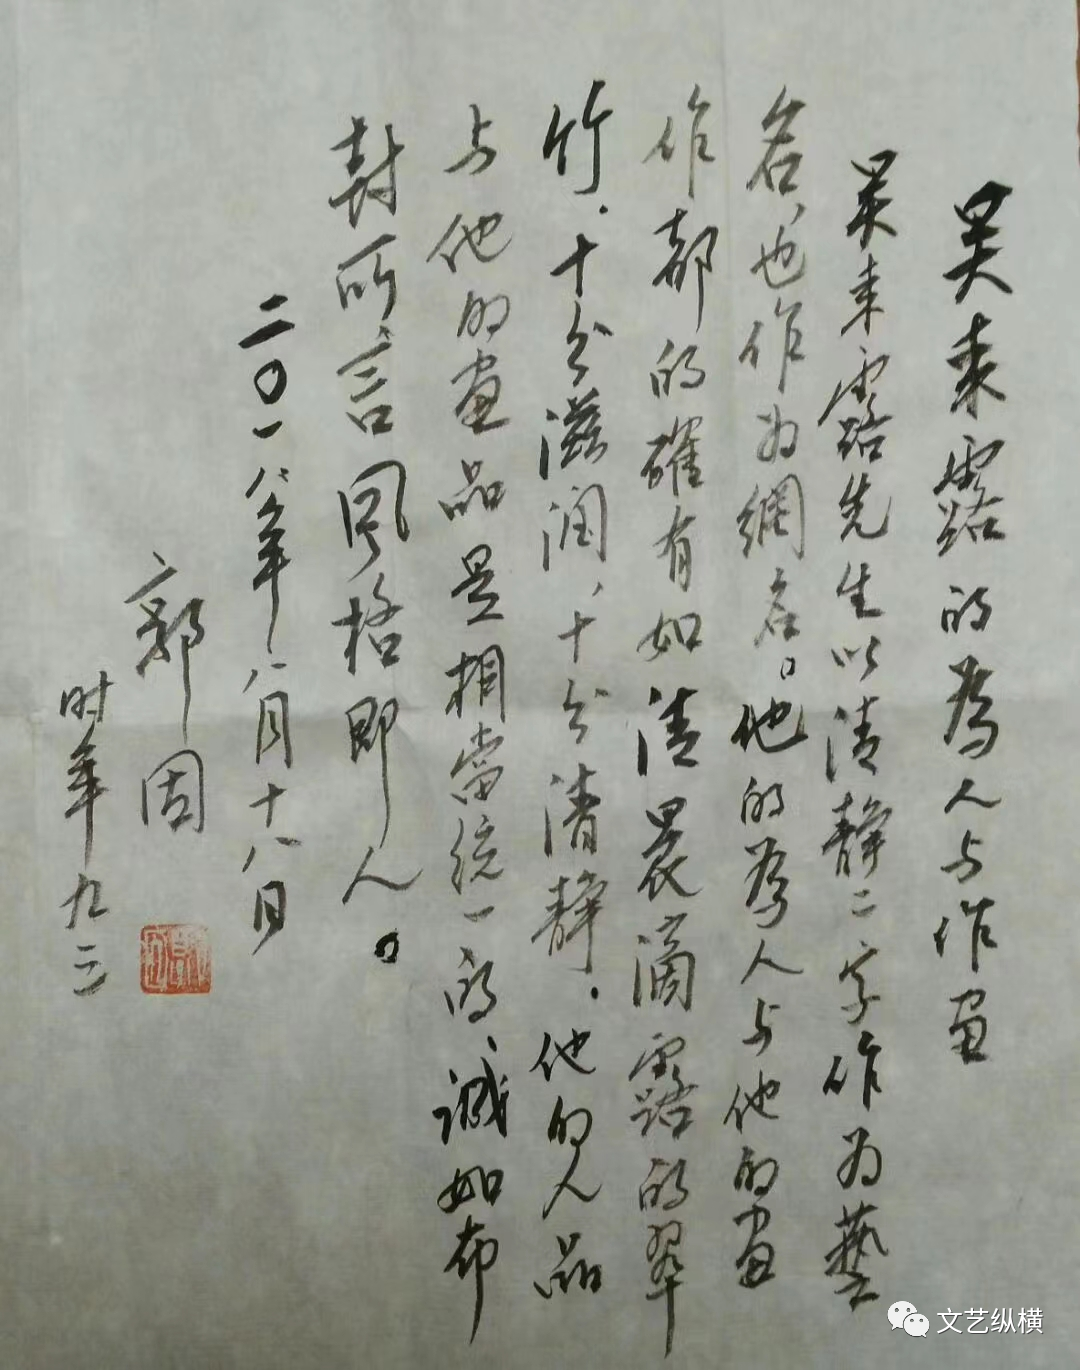 吴来露的為人与作画
吴来露先生以清静二字作为藝
名、也作为網名。他的為人与他的画
作都的確有如清晨滴露的翠
竹．十分滋润、十分清静．他的人品
与他的畫品是相當统一的、诚如布
封所言風格即人。
二〇一八年八月十八日
郭固
时年九二
文艺纵横